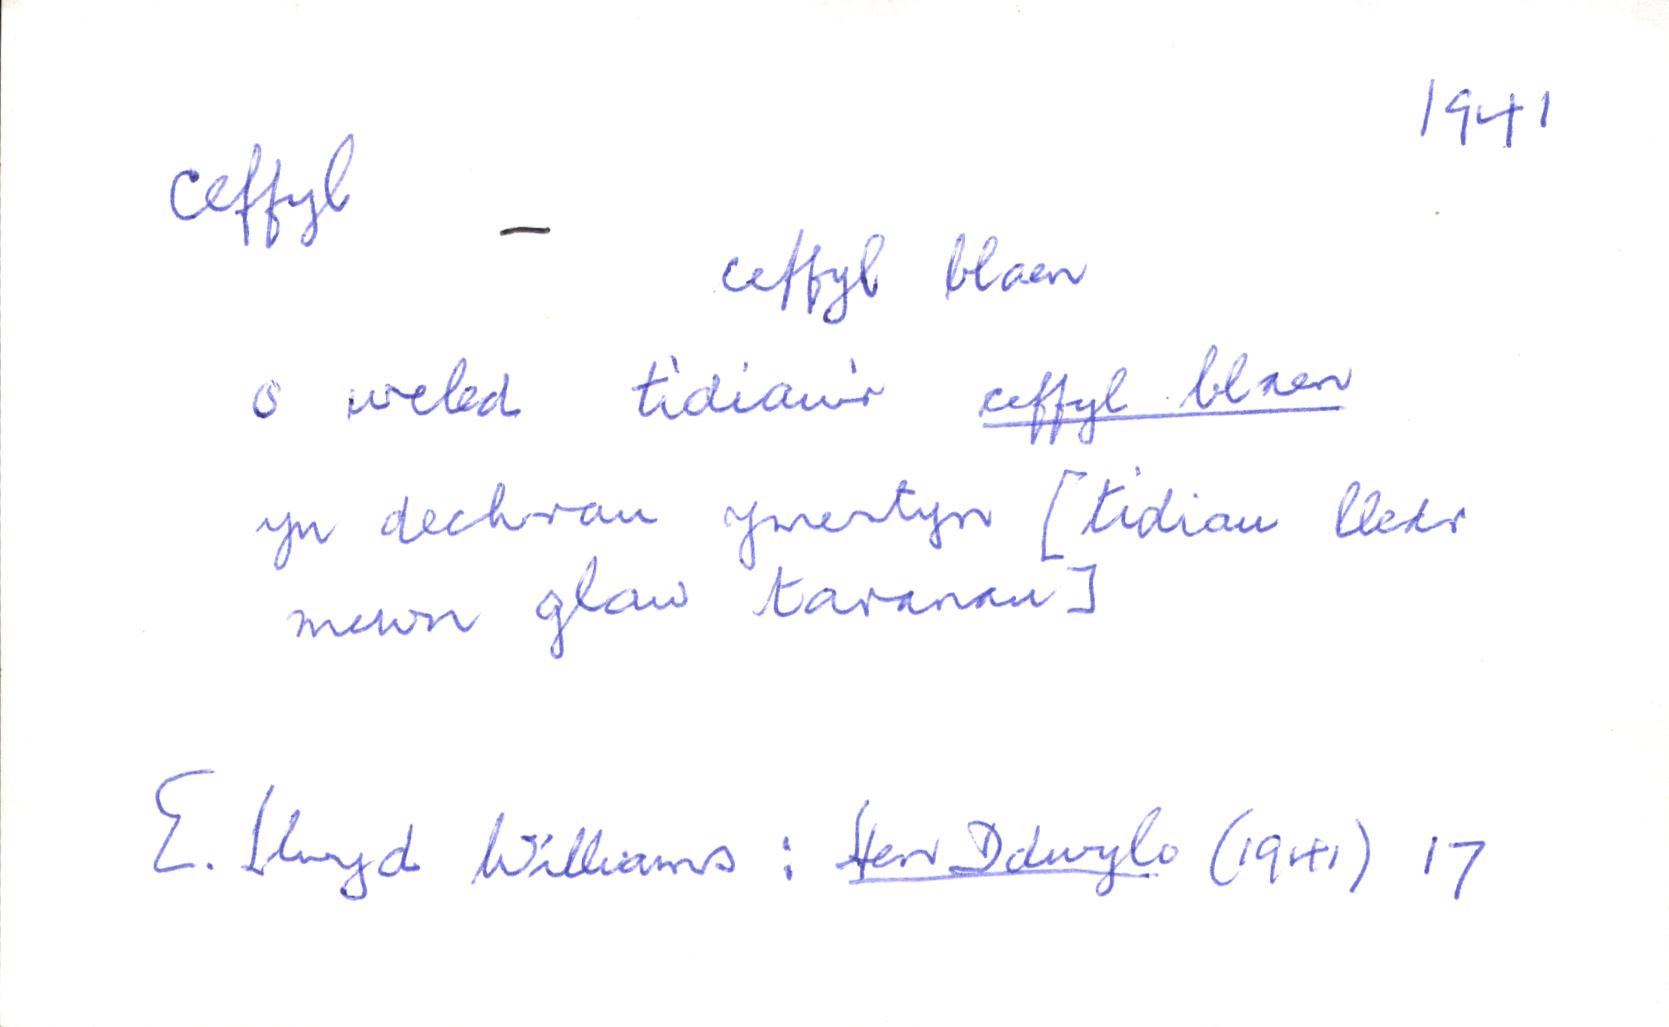 1941
ceffyl –
ceffyl blaen
o weled tidiau'r ceffyl blaen
yn dechrau ymestyn [tidiau lledr
mewn glaw taranau]
E. Llwyd Williams : Hen Ddwylo (1941) 17